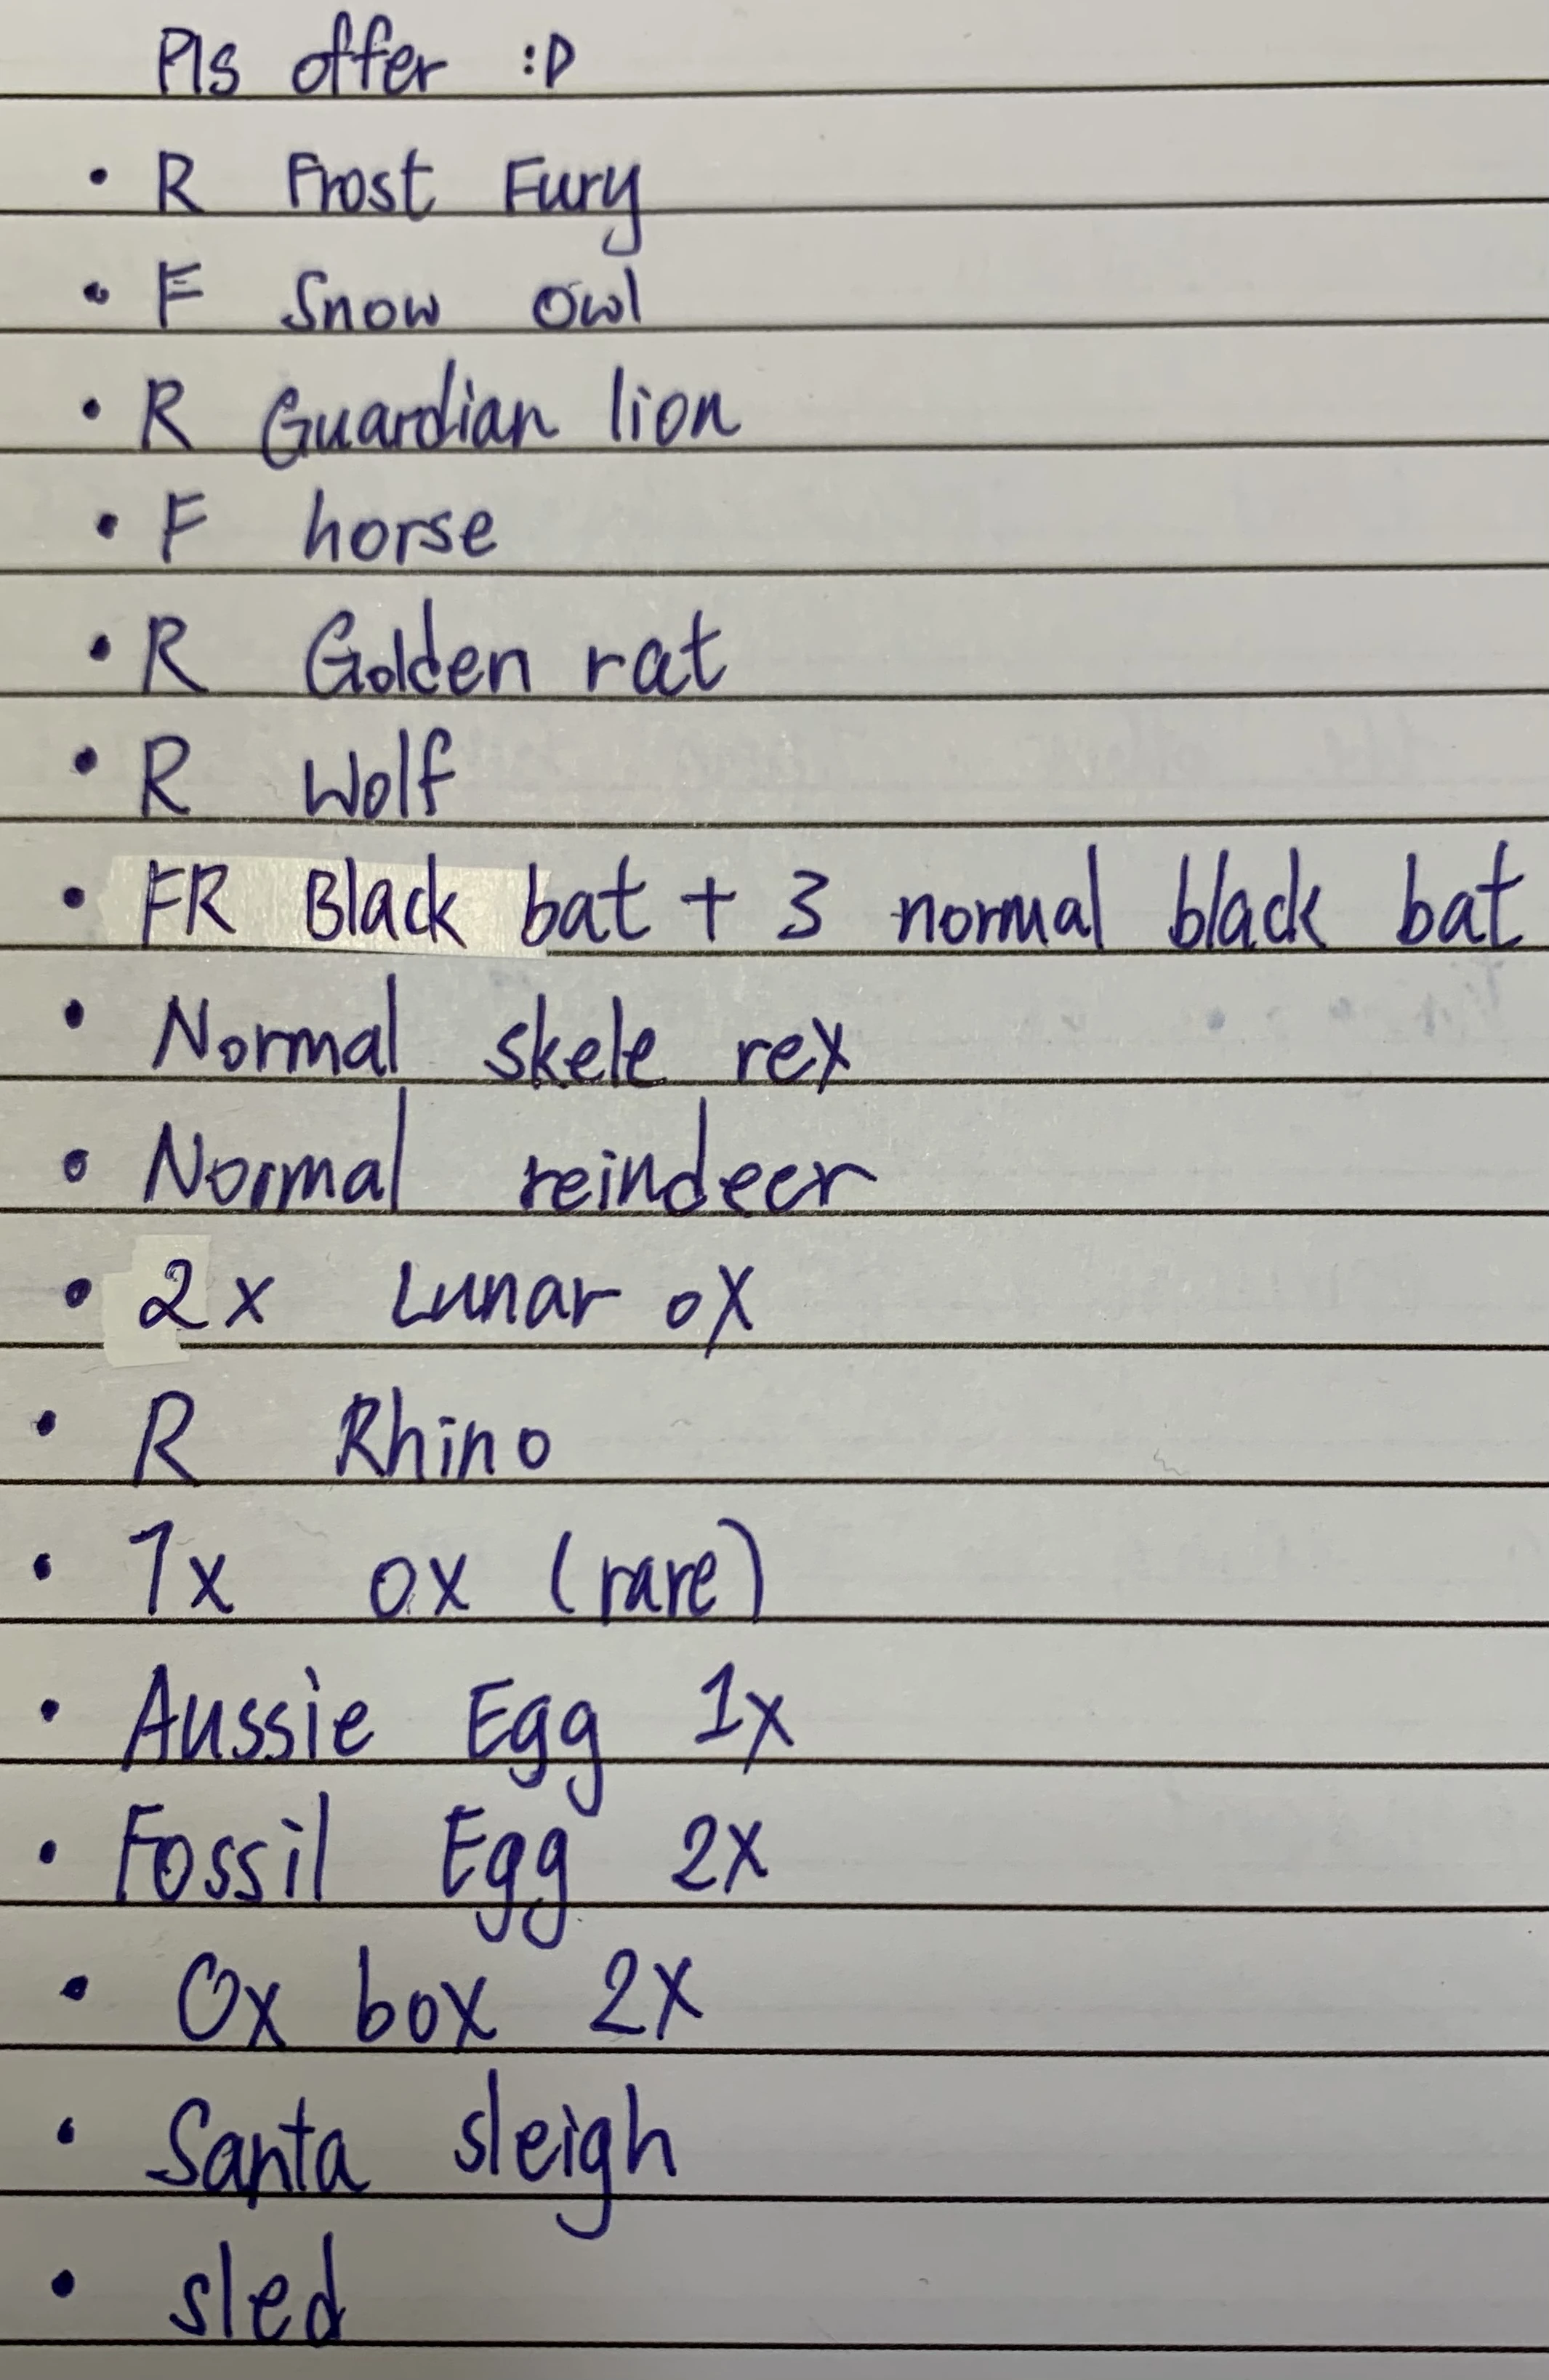 Pls offer :D
• R Frost Fury
• F Snow owl
• R Guardian lion
• F horse
• R Golden rat
• R Wolf
• FR Black bat + 3 normal black bat
• Normal skele rex
• Normal reindeer
• 2x Lunar ox
• R Rhino
• 1x ox (rare)
• Aussie Egg 1x
• Fossil Egg 2x
• Ox box 2x
• Santa sleigh
• sled